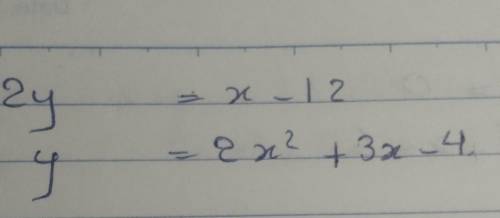 2y = x - 12
y = 2x² + 3x - 4.